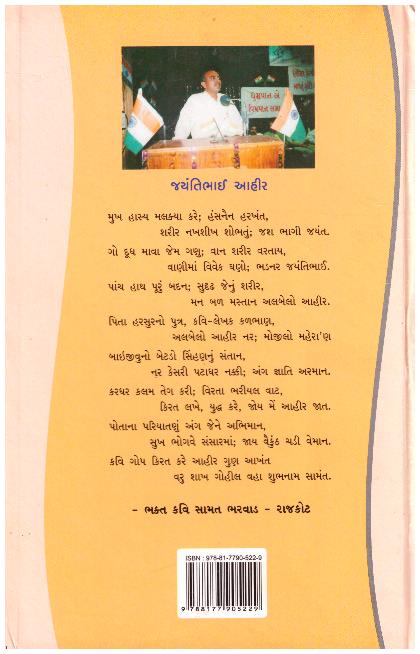 ધૂમ્રપાન એ
જયંતિભાઈ આહીર
મુખ હાસ્ય મલક્યા કરે; હંસનૈન હરખંત,
શરીર નખશીખ શોભતું; જશ ભાગી જયંત.
ગો દૂધ માવા જેમ ગણુ; વાન શરીર વરતાય,
વાણીમાં વિવેક ઘણો; ભડનર જયંતિભાઈ.
પાંચ હાથ પૂરું બદન; સુદઢ જેનું શરીર,
મન બળ મસ્તાન અલબેલો આહીર.
પિતા હરસુરનો પુત્ર, કવિ-લેખક કળભાણ,
અલબેલો આહીર નર; મોજીલો મહેરા'ણ
બાઇજીવુનો બેટડો સિંહણનું સંતાન,
નર કેસરી પટાધર નક્કી; અંગ જ્ઞાતિ અરમાન.
કરધર કલમ તેગ કરી; વિરતા ભરીયલ વાટ,
કિરત લખે, યુદ્ધ કરે, જોય મેં આહીર જાત.
પોતાના પરિયાતણું અંગ જેને અભિમાન,
સુખ ભોગવે સંસારમાં; જાય વૈકુંઠ ચડી વેમાન.
કવિ ગોપ કિરત કરે આહીર ગુણ આખંત
વરુ શાખ ગોહીલ વહા શુભનામ સામંત.
- ભક્ત કવિ સામત ભરવાડ - રાજકોટ
ISBN : 978-81-7790-522-9
9 788177 905229